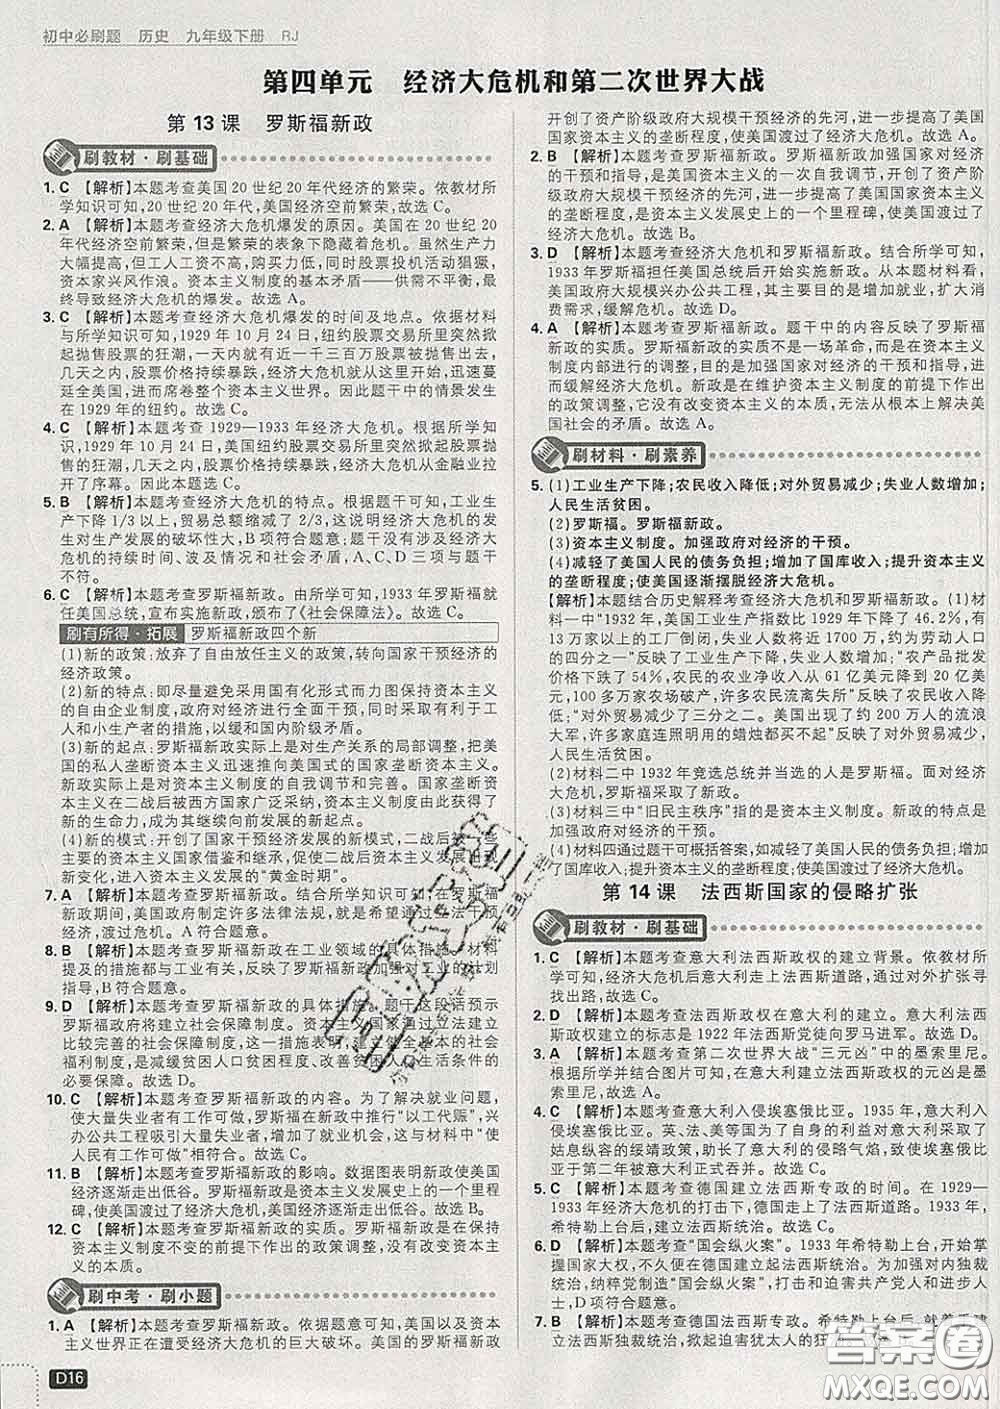 初中必刷题 历史 九年级下册 RJ
第四单元 经济大危机和第二次世界大战
第 13 课 罗斯福新政
刷教材·刷基础
1. C 【解析】本题考查美国 20 世纪 20 年代经济的繁荣。依教材所
学知识可知,20 世纪 20 年代,美国经济空前繁荣,故选 C。
2. A 【解析】本题考查经济大危机爆发的原因。美国在 20 世纪 20
年代经济空前繁荣,但是繁荣的表象下隐藏着危机。虽然生产力
大幅提高,但工人工资不高,购买力低,同时股票投机活动猖獗,
资本家兴风作浪。资本主义制度的基本矛盾——供需不平衡,最
终导致经济大危机的爆发。故选 A。
3. C 【解析】本题考查经济大危机爆发的时间及地点。依据材料
与所学知识可知,1929 年 10 月 24 日,纽约股票交易所里突然
掀起抛售股票的狂潮,一天内就有近一千三百万股票被抛售出去,
几天之内,股票价格持续暴跌,经济大危机就从金融业开始,迅速蔓
延全美国,进而席卷整个资本主义世界。因此题干中的情景发生
在 1929 年的纽约。故选 C。
4. C 【解析】本题考查 1929—1933 年经济大危机。根据所学知
识,1929 年 10 月 24 日,美国纽约股票交易所里突然掀起抛
售的狂潮,几天之内,股票价格持续暴跌,经济大危机从金融业拉
开了序幕。因此本题选 C。
5. B 【解析】本题考查经济大危机的特点。根据题干可知,工业生
产下降 1/3 以上,贸易总额缩减了 2/3,这说明经济大危机的发
生对生产发展的破坏性大,B项符合题意;题干没有涉及经济大
危机的持续时间、波及情况和社会矛盾,A、C、D 三项与题干
不符。
6. C 【解析】本题考查罗斯福新政。由所学可知,1933 年罗斯福就
任美国总统,宣布实施新政,颁布了《社会保障法》。故选 C。
刷有所得·拓展 罗斯福新政四个新
(1)新的政策:放弃了自由放任主义的政策,转向国家干预经济的
经济政策。
(2)新的特点:即尽量避免采用国有化形式而力图保持资本主义
的自由企业制度,政府对经济进行全面干预,同时采取有利于工
人和小生产者的措施,以缓和国内阶级矛盾。
(3)新的起点:罗斯福新政实际上是对生产关系的局部调整,把美
国的私人垄断资本主义迅速推向美国式的国家垄断资本主义。
新政实际上是对资本主义制度的自我调节和完善。国家垄断资
本主义在二战后被西方国家广泛采纳,资本主义制度由此获得了
新的生命力,成为其继续向前发展的新起点。
(4)新的模式:开创了国家干预经济发展的新模式,二战后被一些主
要的资本主义国家借鉴和继承,促使二战后资本主义发展出现
新变化,进入一个发展的"黄金时期"。
7. A 【解析】本题考查罗斯福新政。结合所学知识可知,罗斯福新政
期间,美国政府制定许多法律法规,就是希望能够缓和经济危机,稳定
经济,渡过危机。A 符合题意。
8. B 【解析】本题考查罗斯福新政在工业领域的具体措施。材料
提及的措施都与工业有关,反映了罗斯福新政加强对工业的计划
指导,B 符合题意。
9. D 【解析】本题考查罗斯福新政的具体措施。题干这段话预示
罗斯福政府将建立社会保障制度。资本主义国家通过立法建立
比较完善的社会保障制度,这一措施表明,建立健全基本的社会
福利制度,是减缓贫困人口贫困程度、改善贫困人口生活条件的
必要保障。故选 D。
10. C 【解析】本题考查罗斯福新政的内容。为了解决就业问题,
使大量失业者有工作可做,罗斯福在新政中推行"以工代赈",兴
办公共工程吸引大量失业者,增加了就业机会,这与材料中"使
人民有工作可做"相符合。故选 C。
11. B 【解析】本题考查罗斯福新政的影响。数据图表明新政使美国
经济逐渐走出低谷。罗斯福新政是资本主义发展史上的一个里程
碑,使美国渡过了经济大危机,美国经济逐渐走出低谷。故选 B。
12. C 【解析】本题考查罗斯福新政的实质。罗斯福新政是在保持
资本主义制度不变的前提下作出的政策调整,维护了资本主义
制度。故选 C。
刷中考·刷小题
1. A 【解析】本题考查罗斯福新政。依据题意可知,美国以及资本
主义世界正在遭受经济大危机的巨大破坏。美国的罗斯福新政
开创了资产阶级政府大规模干预经济的先河,进一步提高了美国
国家资本主义的垄断程度,使美国渡过了经济大危机。故选 A。
2. B 【解析】本题考查罗斯福新政。罗斯福新政加强国家对经济
的干预和指导,是美国资本主义的一次自我调节,开创了资产阶
级政府大规模干预经济的先河,进一步提高了美国国家资本主义
的垄断程度,是资本主义发展史上的一个里程碑,使美国渡过了
经济大危机。故选 B。
3. D 【解析】本题考查经济大危机和罗斯福新政。结合所学可知,
1933 年罗斯福担任美国总统后开始实施新政。从本题材料看,
美国政府大规模兴办公共工程,其目的是增加就业,扩大了消
费需求,缓解危机。故选 D。
4. A 【解析】本题考查罗斯福新政。题干中的内容反映了罗斯福
新政的实质。罗斯福新政的实质不是一场革命,而是在资本主义
制度内部进行的调整,目的是加强国家对经济的干预和指导,进
而缓解经济大危机。新政是在维护资本主义的前提下作出
的政策调整,它没有改变资本主义的本质,无法从根本上解决美
国社会的矛盾。故选 A。
刷材料·刷素养
5. (1)工业生产下降;农民收入降低;对外贸易减少;失业人数增加;
人民生活贫困。
(2)罗斯福。罗斯福新政。
(3)资本主义制度。加强政府对经济的干预。
(4)减轻了美国人民的债务负担;增加了国库收入;提升资本主义
的垄断程度;使美国逐渐摆脱经济大危机。
【解析】本题结合历史解释考查经济大危机和罗斯福新政。(1)材料
一中"1932 年,美国工业生产指数比 1929 年下降了 46.2%,有
13 万家以上的工厂倒闭,失业人数将近 1700 万,约为劳动人口
的四分之一"反映了工业生产下降,失业人数增加;"农产品批发
价格下跌了 54%,农民的农业净收入从 61 亿美元降到 20 亿美
元,100 多万家农场破产,许多农民流离失所"反映了农民收入降
低;"对外贸易减少了三分之二。美国出现了约 200 万人的流浪
大军,许多家庭连照明用的蜡烛都买不起"反映了对外贸易减少、
人民生活贫困。
(2)材料二中 1932 年竞选总统并当选的人是罗斯福。面对经济
大危机,罗斯福采取了新政。
(3)材料三中"旧民主秩序"指的是资本主义制度。新政的特点是
加强政府对经济的干预。
(4)材料四通过题干可概括答案,如减轻了美国人民的债务负担;增
加了国库收入;提升资本主义的垄断程度;使美国渡过了经济大危机。
第 14 课 法西斯国家的侵略扩张
刷教材·刷基础
1. C 【解析】本题考查意大利法西斯政权的建立背景。依教材所
学可知,经济大危机后意大利走上法西斯道路,通过对外扩张寻
找出路,故选 C。
2. D 【解析】本题考查法西斯政权在意大利的建立。意大利法西
斯政权建立的标志是 1922 年法西斯党徒向罗马进军。故选 D。
3. A 【解析】本题考查第二次世界大战"三元凶"中的墨索里尼。
根据所学可知,意大利建立法西斯政权的元凶是墨
索里尼,故选 A。
4. C 【解析】本题考查意大利入侵埃塞俄比亚。1935 年,意大利入
侵埃塞俄比亚。英、法、美等国为了自身的利益对意大利采取了
姑息纵容的绥靖政策,助长了意大利的侵略气焰,致使埃塞俄比
亚于第二年被意大利正式吞并。故选 C。
5. C 【解析】本题考查德国建立法西斯专政的时间。在 1929—
1933 年经济大危机的打击下,德国走上了法西斯道路。1933 年,
希特勒上台后,建立法西斯统治。故选 C。
6. D 【解析】本题考查"国会纵火案"。1933 年希特勒上台,开始实施对内独裁统
治,纳粹党策划"国会纵火案",打击和迫害共产党人和进步人
士,D 项符合题意。
7. B 【解析】本题考查德国法西斯专政。希特勒上台
D16
答案圈
MXQE.COM